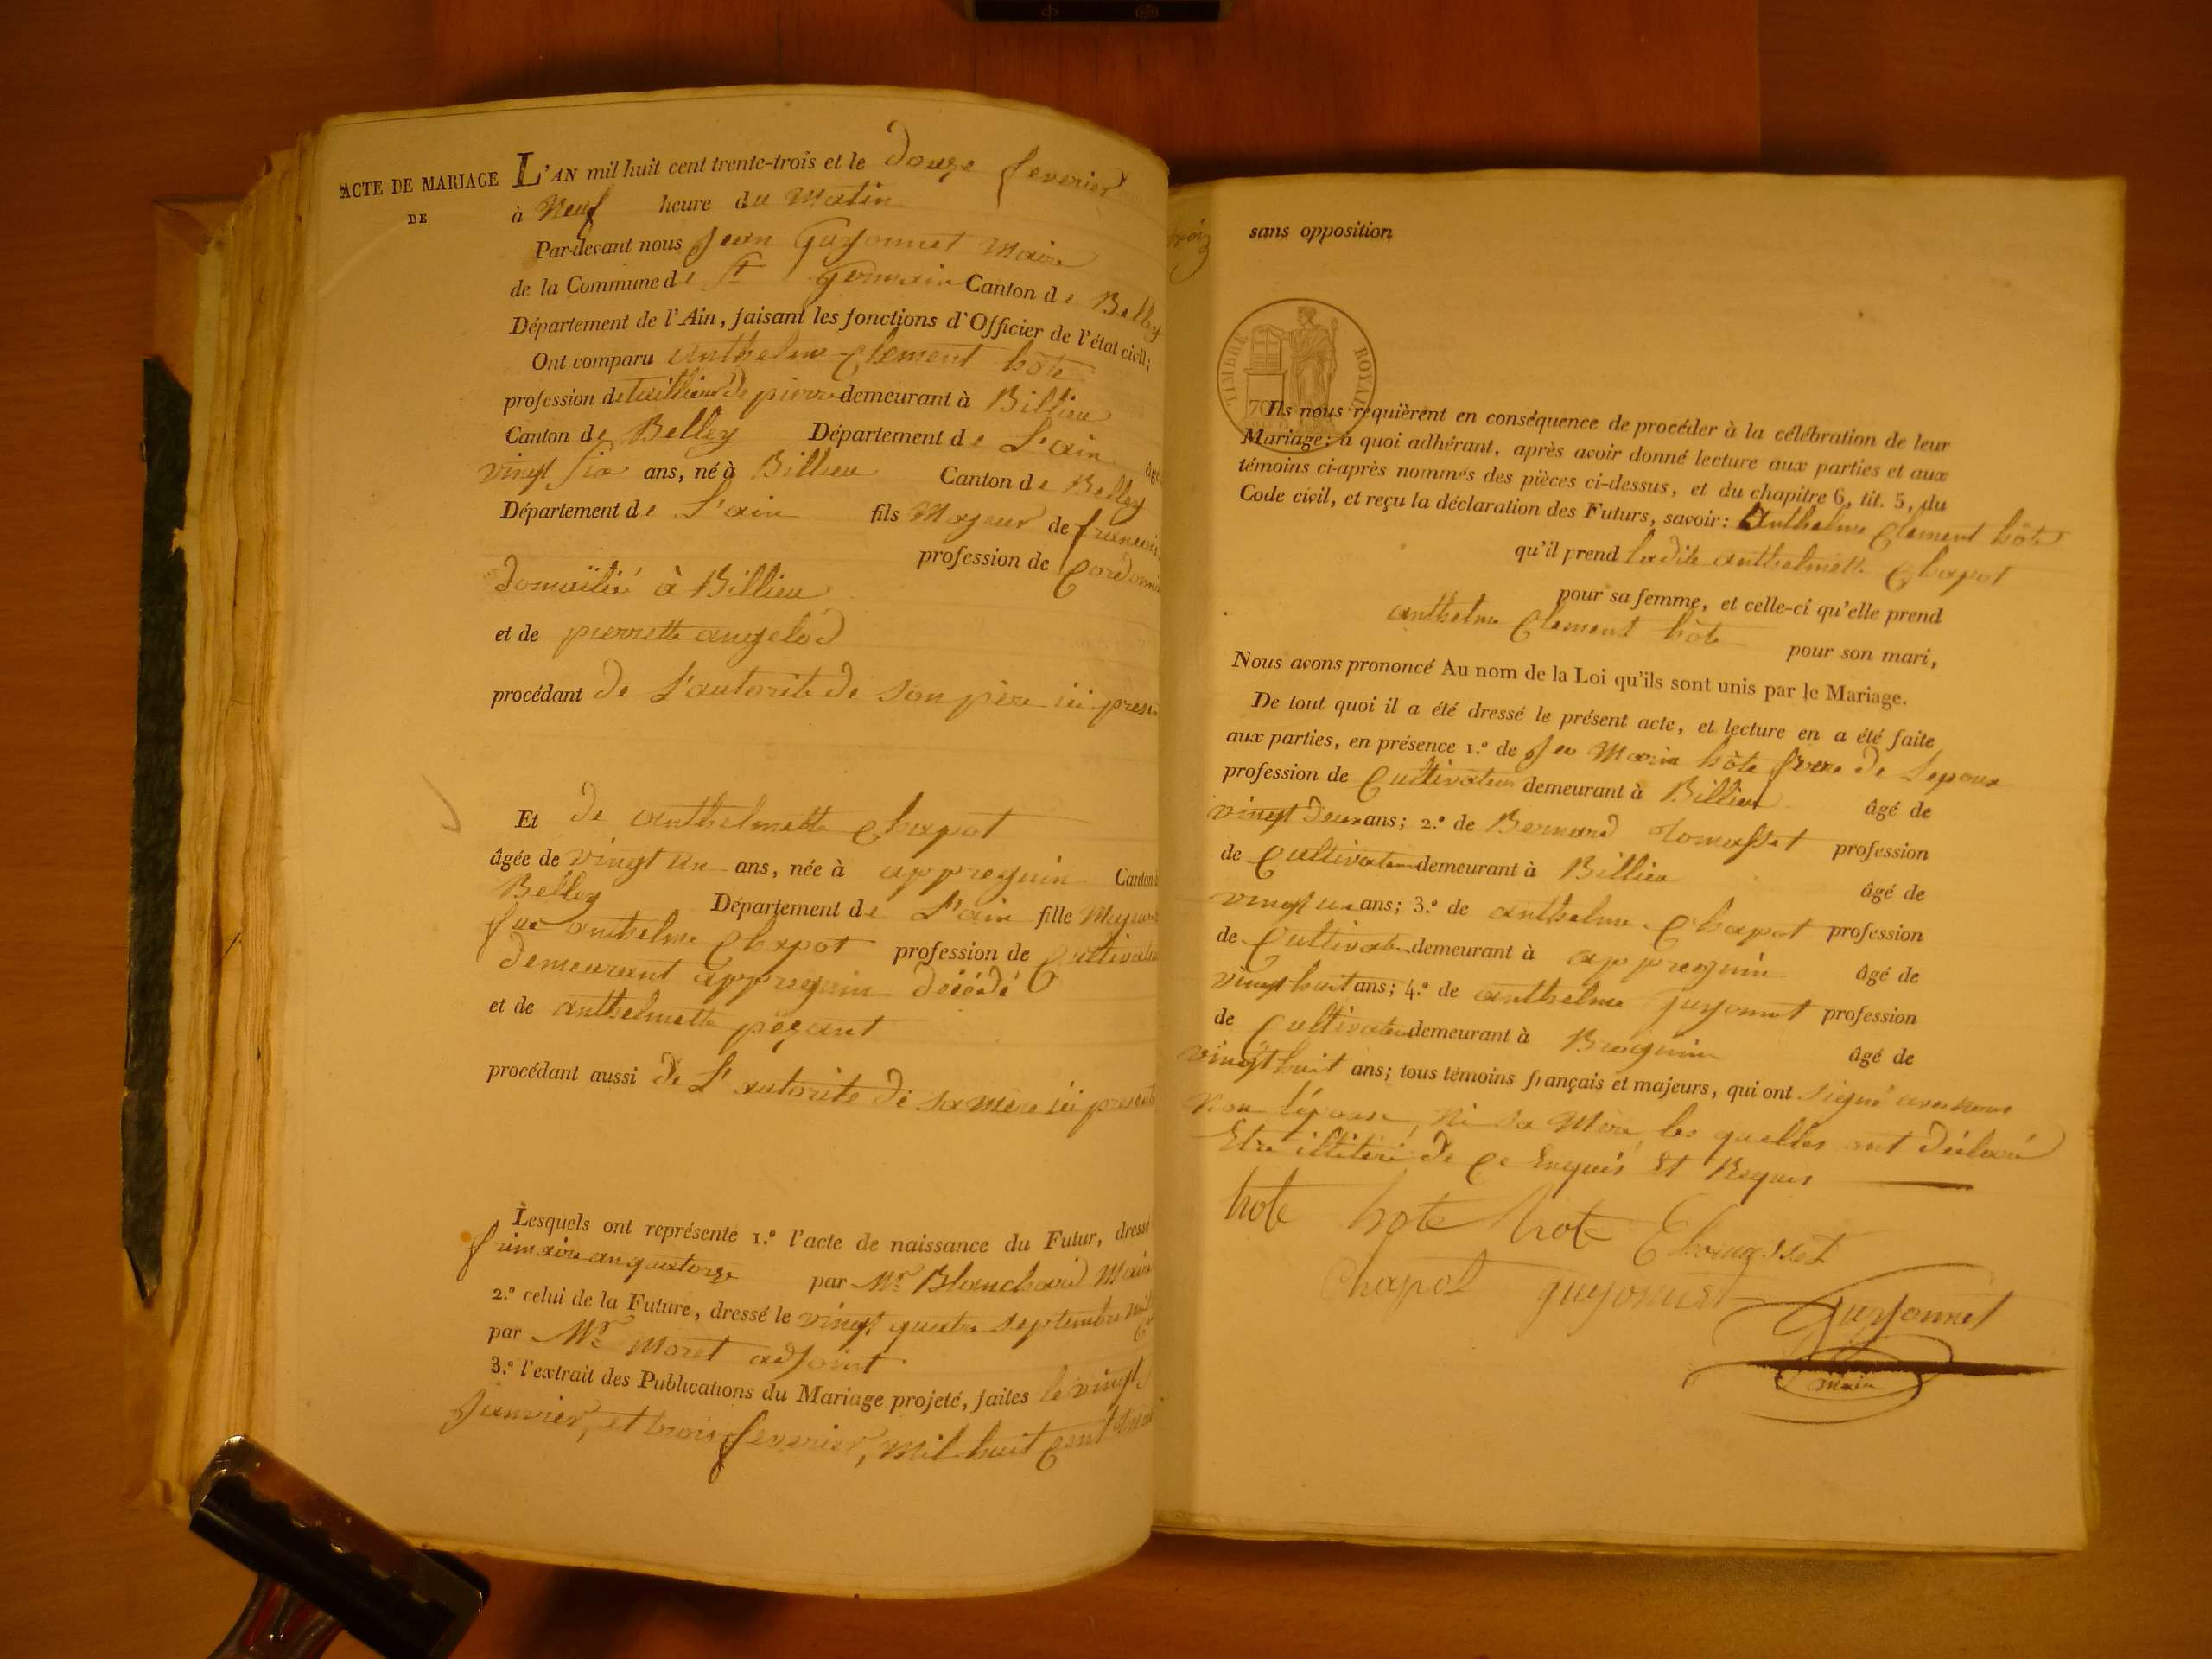 ACTE DE MARIAGE
DE
L'AN mil huit cent trente-trois et le douze feverier
à Neuf heure du Matin
Par-devant nous Jean Guyonnet Maire
de la Commune de St germain Canton de Belley
Département de l'Ain, faisant les fonctions d'Officier de l'état civil;
Ont comparu anthelme Clement hôte
profession de tailleur de pierre demeurant à Billieu
Canton de Belley Département de L'ain âgé
vingt six ans, né à Billieu Canton de Belley
Département de L'ain fils Majeur de francois
profession de Cordonni
domicilié à Billieu
et de pierrette angelod
procédant de L'autorité de son père ici presen
Et de anthelmette Chapot
âgée de vingt un ans, née à appregnin Canton
Belley Département de L'ain fille Majeure
feu anthelme Chapot profession de Cultivateu
demeurant appregnin décédé
et de anthelmette pezant
procédant aussi de L'autorité de sa mère ici presente
Lesquels ont représenté 1.º l'acte de naissance du Futur, dressé
frimaire an quatorze par Mr Blanchard Maire
2.º celui de la Future, dressé le vingt quatre septembre mil
par Mr Moret adjoint
3.º l'extrait des Publications du Mariage projeté, faites le vingt
Janvier, et trois feverier, mil huit cent trent
trois
sans opposition
TIMBRE ROYAL
70
Ils nous requièrent en conséquence de procéder à la célébration de leur
Mariage: à quoi adhérant, après avoir donné lecture aux parties et aux
témoins ci-après nommés des pièces ci-dessus, et du chapitre 6, tit. 5, du
Code civil, et reçu la déclaration des Futurs, savoir: Anthelme Clement hôte
qu'il prend ladite anthelmette Chapot
pour sa femme, et celle-ci qu'elle prend
anthelme Clement hôte pour son mari,
Nous avons prononcé Au nom de la Loi qu'ils sont unis par le Mariage.
De tout quoi il a été dressé le présent acte, et lecture en a été faite
aux parties, en présence 1.º de Marie hôte frere de Lepoux
profession de Cultivateur demeurant à Billieu âgé de
vingt deux ans; 2.º de Bernard tomasset profession
de Cultivateur demeurant à Billieu âgé de
vingt un ans; 3.º de anthelme Chapot profession
de Cultivateur demeurant à appregnin âgé de
vingt huit ans; 4.º de anthelme guyonnet profession
de Cultivateur demeurant à Brognin âgé de
vingt huit ans; tous témoins français et majeurs, qui ont signé avec nous
non lépouse, ni sa Mère, les quelles ont déclaré
Etre illitéré de Ce Enquis Et Requis
hote hote hote Thomasset
Chapot guyonnet Guyonnet
Maire